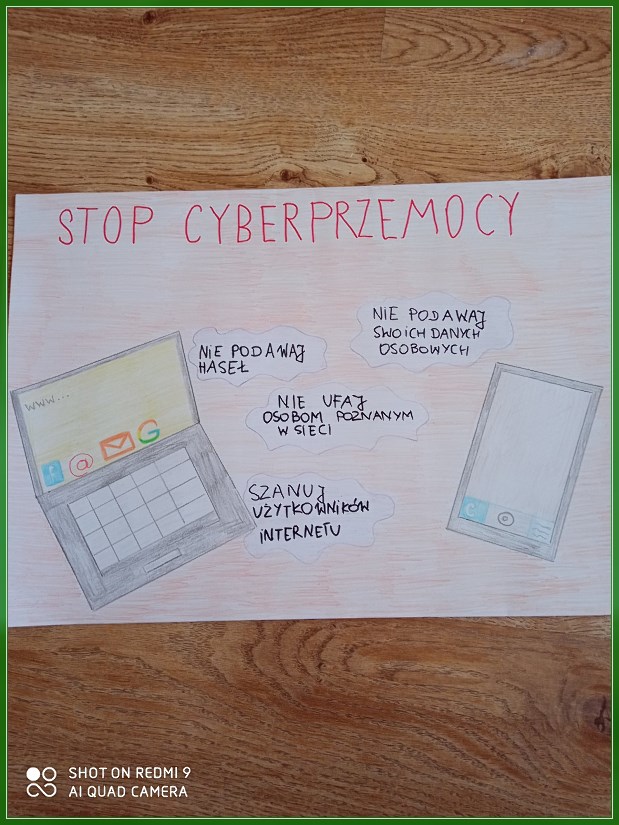 STOP CYBERPRZEMOCY
NIE PODAWAJ
SWOICH DANYCH
OSOBOWYCH
NIE PODAWAJ
HASEŁ
NIE UFAJ
OSOBOM POZNANYM
W SIECI
www...
@
G
SZANUJ
UŻYTKOWNIKÓW
INTERNETU
SHOT ON REDMI 9
AI QUAD CAMERA